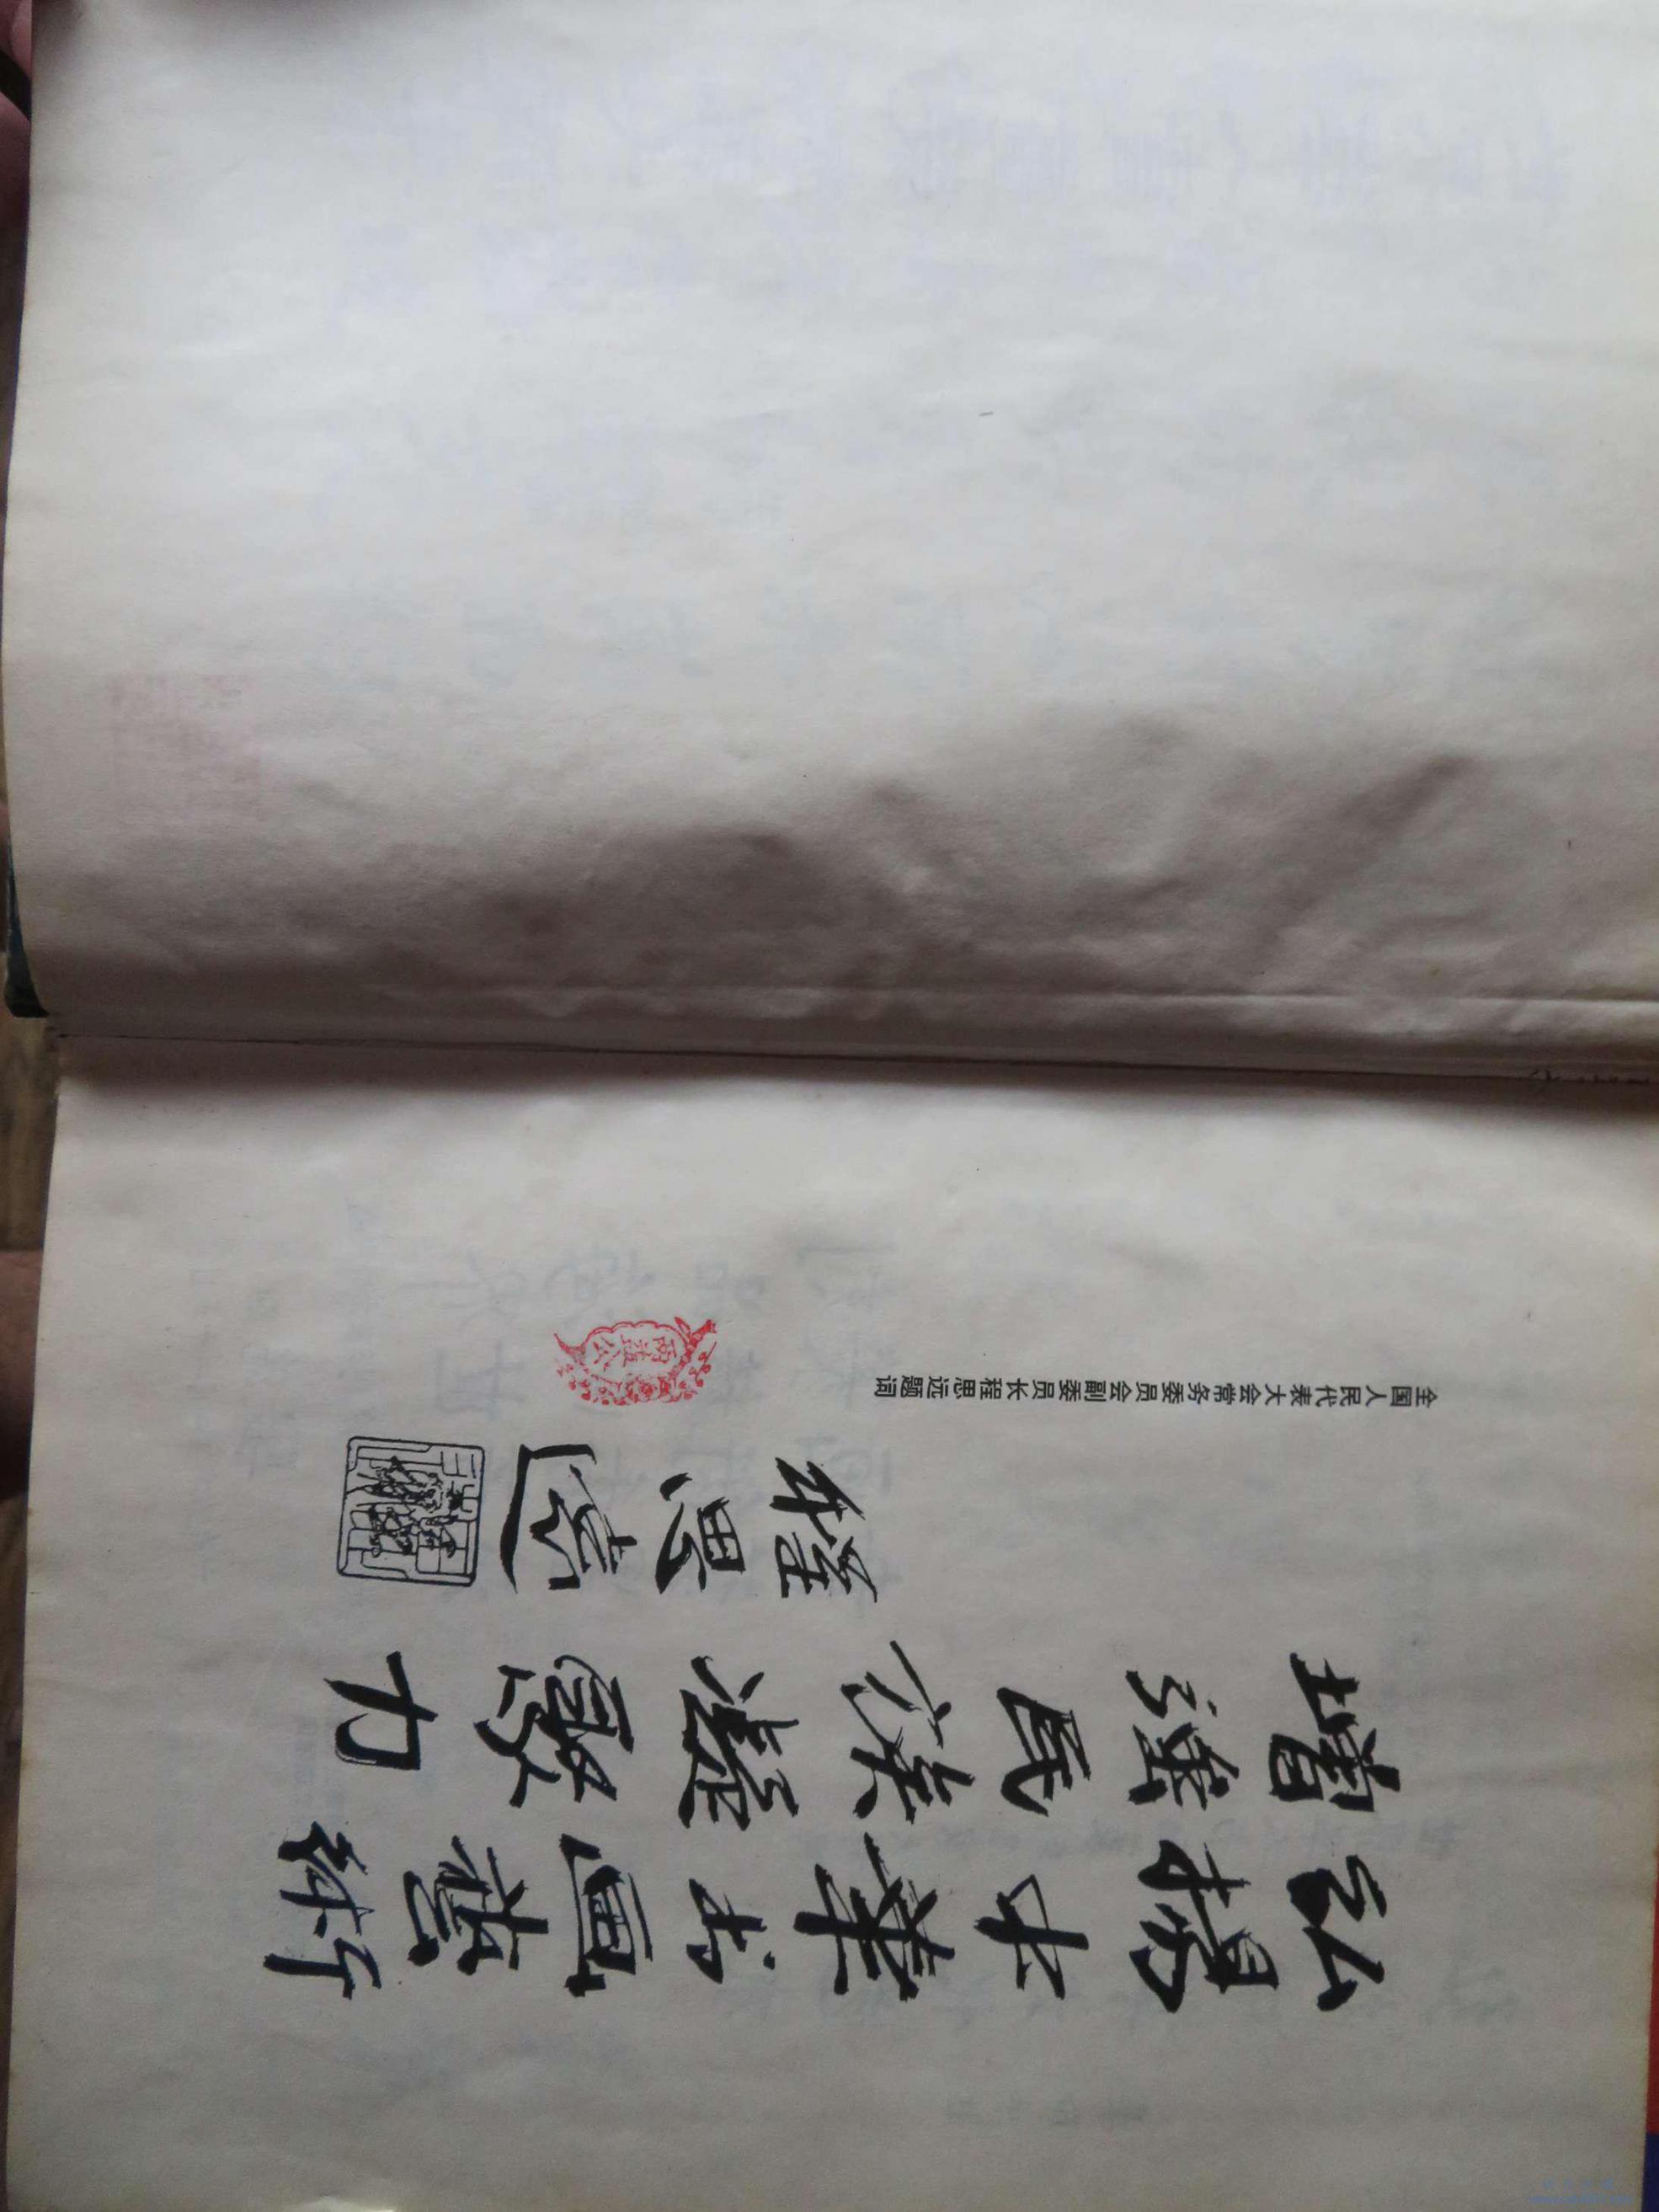 弘揚中華书画藝術
增强民族凝聚力
程思遠
全国人民代表大会常务委员会副委员长程思远题词